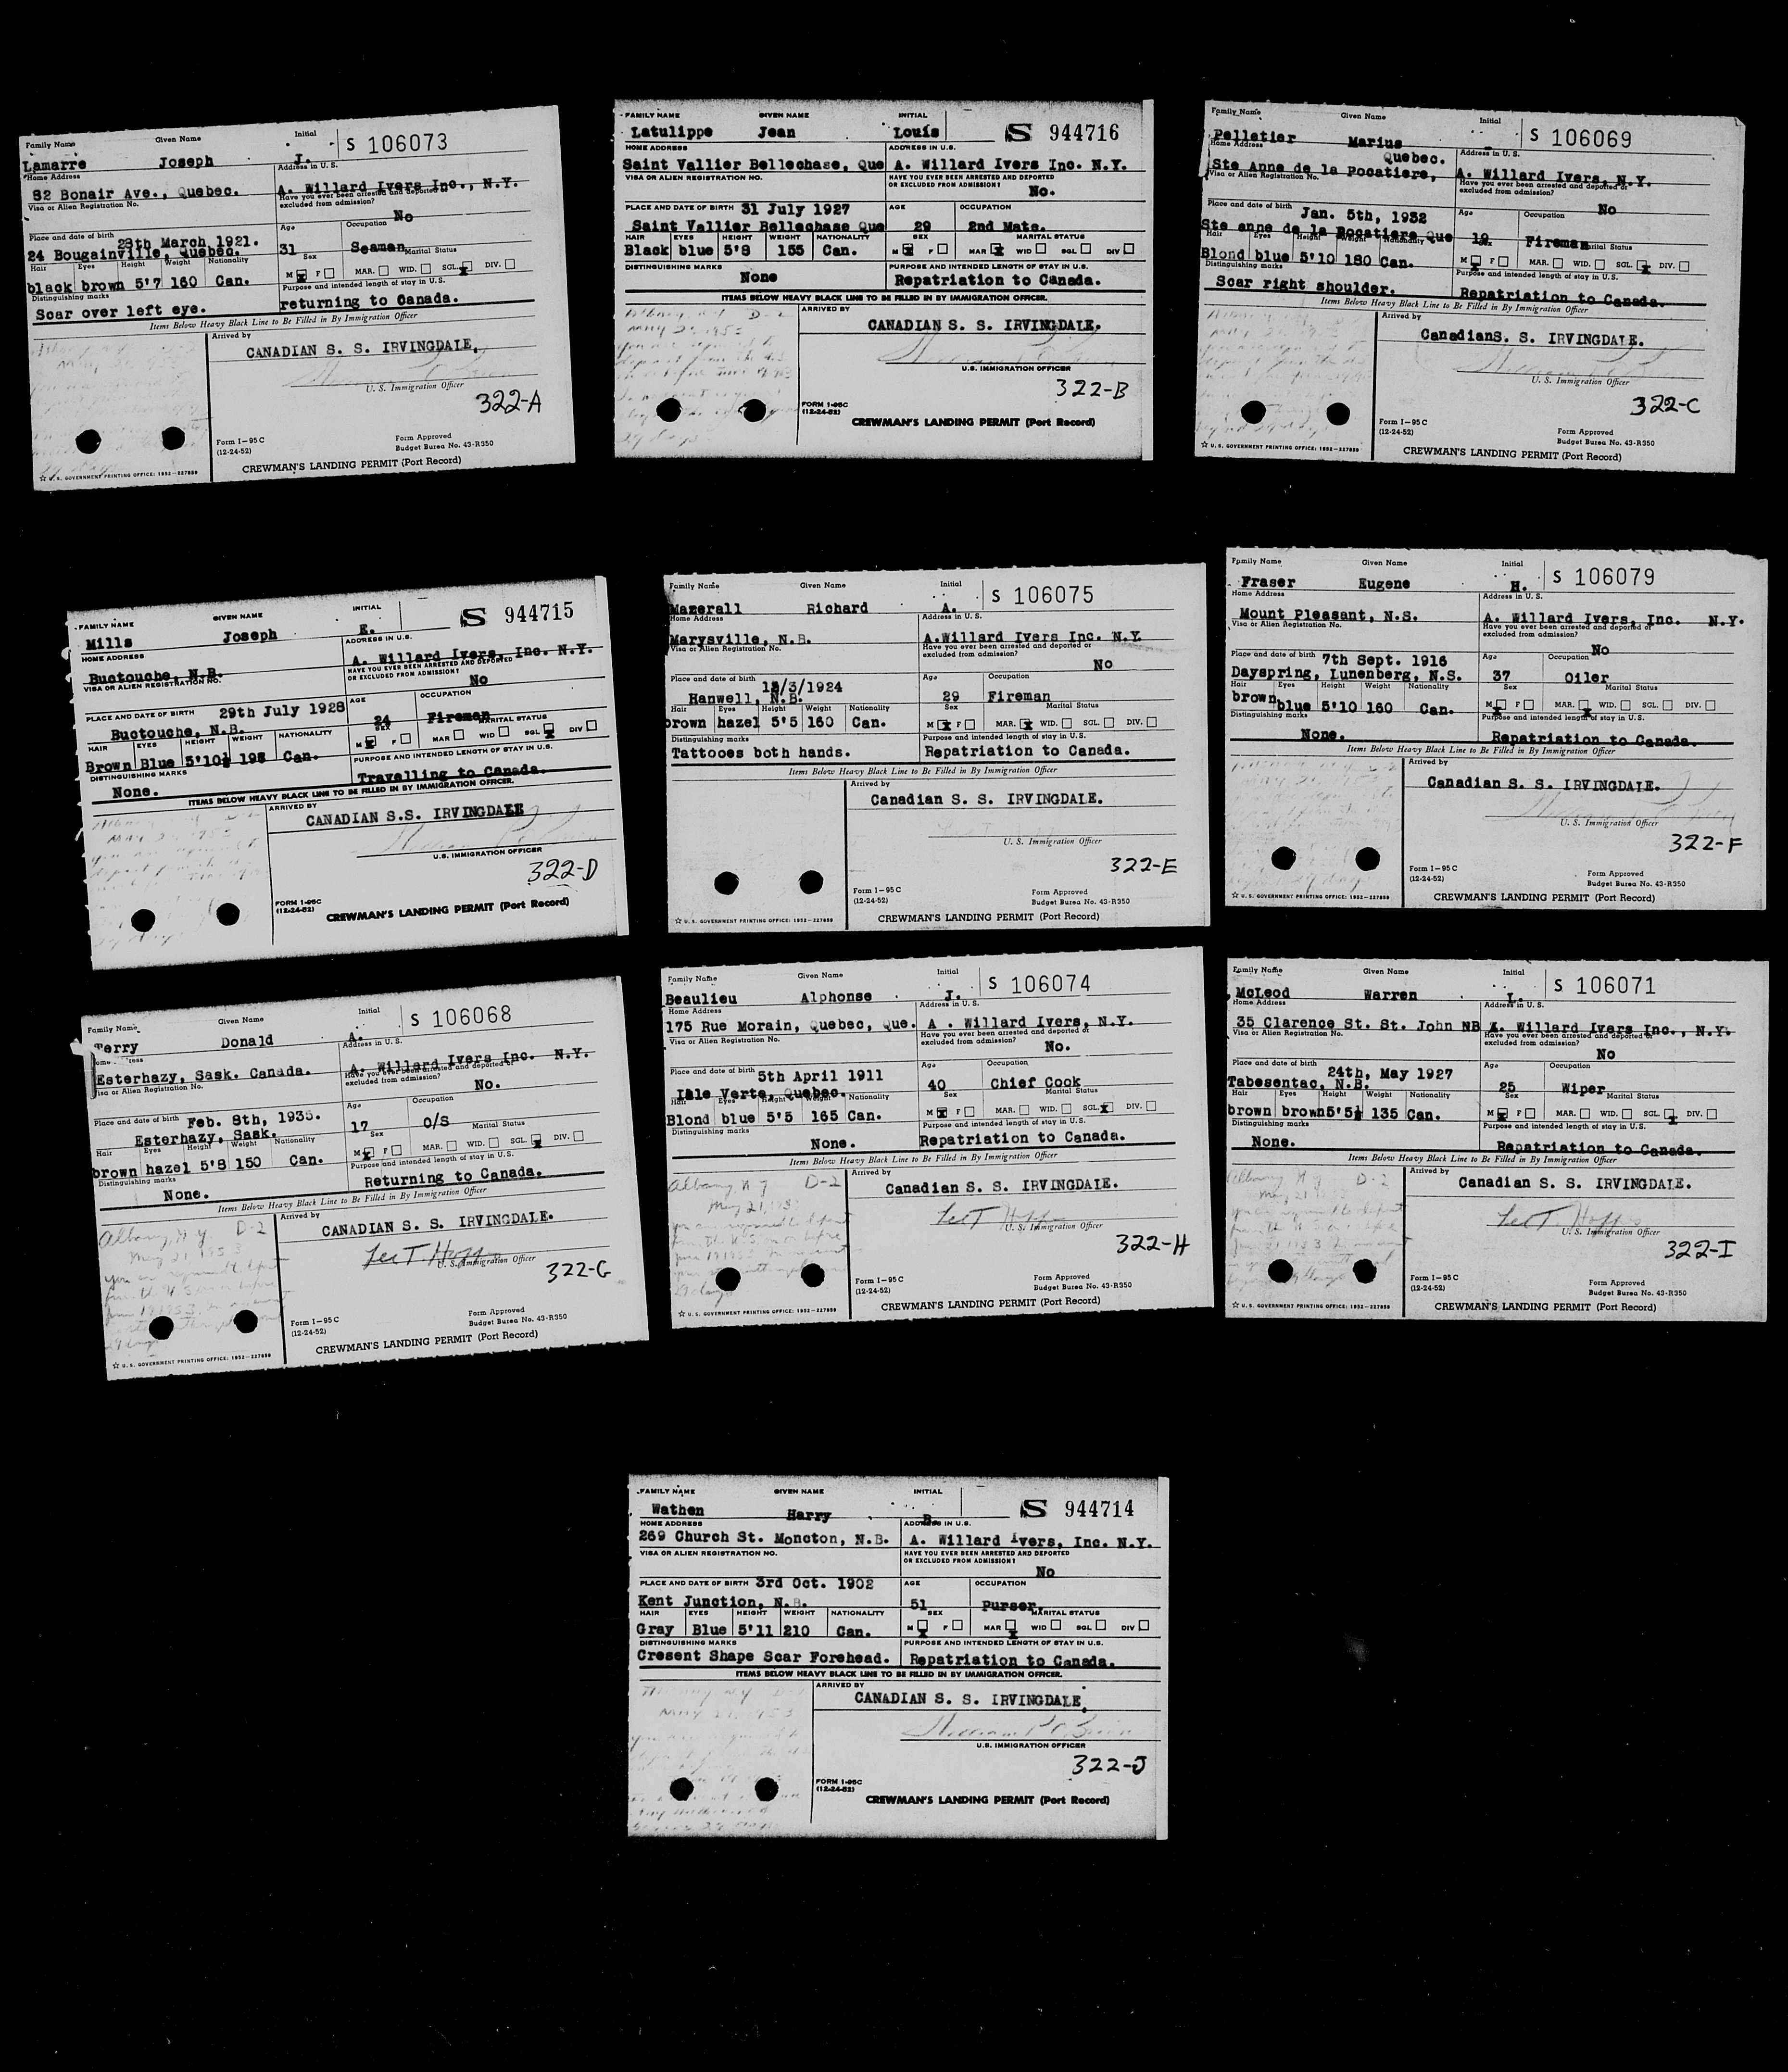 Family Name Given Name Initial S 106073
Lamarre Joseph J.
Home Address Address in U.S.
82 Bonair Ave., Quebec. A. Willard Ivers Inc., N.Y.
Visa or Alien Registration No. Have you ever been arrested and deported or excluded from admission?
No
Place and date of birth 28th March 1921. Age Occupation
24 Bougainville, Quebec. 31 Seaman
Hair Eyes Height Weight Nationality Sex Marital Status
black brown 5'7 160 Can. M F MAR. WID. SGL. DIV.
Distinguishing marks Purpose and intended length of stay in U.S.
Scar over left eye. returning to Canada.
Items Below Heavy Black Line to Be Filled in By Immigration Officer
Arrived by
CANADIAN S. S. IRVINGDALE.
U. S. Immigration Officer
322-A
Form I-95 C (12-24-52)
Form Approved Budget Burea No. 43-R350
☆ U. S. GOVERNMENT PRINTING OFFICE: 1952-227859
CREWMAN'S LANDING PERMIT (Port Record)
FAMILY NAME GIVEN NAME INITIAL S 944716
Latulippe Jean Louis
HOME ADDRESS ADDRESS IN U.S.
Saint Vallier Bellechase, Que A. Willard Ivers Inc. N.Y.
VISA OR ALIEN REGISTRATION NO. HAVE YOU EVER BEEN ARRESTED AND DEPORTED OR EXCLUDED FROM ADMISSION?
No.
PLACE AND DATE OF BIRTH 31 July 1927 AGE OCCUPATION
Saint Vallier Bellechase Que 29 2nd Mate.
HAIR EYES HEIGHT WEIGHT NATIONALITY SEX MARITAL STATUS
Black blue 5'8 155 Can. M F MAR WID SGL DIV
DISTINGUISHING MARKS PURPOSE AND INTENDED LENGTH OF STAY IN U.S.
None Repatriation to Canada.
ITEMS BELOW HEAVY BLACK LINE TO BE FILLED IN BY IMMIGRATION OFFICER.
ARRIVED BY
CANADIAN S. S. IRVINGDALE.
U.S. IMMIGRATION OFFICER
322-B
FORM I-95C (12-24-52)
CREWMAN'S LANDING PERMIT (Port Record)
Family Name Given Name Initial S 106069
Pelletier Marius
Home Address Quebec. Address in U.S.
Ste Anne de la Pocatiere, A. Willard Ivers, N.Y.
Visa or Alien Registration No. Have you ever been arrested and deported or excluded from admission?
No
Place and date of birth Jan. 5th, 1932 Age Occupation
Ste anne de la Pocatiere Que 19 Fireman
Hair Eyes Height Weight Nationality Sex Marital Status
Blond blue 5'10 180 Can. M F MAR. WID. SGL. DIV.
Distinguishing marks Purpose and intended length of stay in U.S.
Scar right shoulder. Repatriation to Canada.
Items Below Heavy Black Line to Be Filled in By Immigration Officer
Arrived by
CanadianS. S. IRVINGDALE.
U. S. Immigration Officer
322-C
Form I-95 C (12-24-52)
Form Approved Budget Burea No. 43-R350
☆ U. S. GOVERNMENT PRINTING OFFICE: 1952-227859
CREWMAN'S LANDING PERMIT (Port Record)
FAMILY NAME GIVEN NAME INITIAL S 944715
Mills Joseph E.
HOME ADDRESS ADDRESS IN U.S.
Buctouche, N.B. A. Willard Ivers, Inc. N.Y.
VISA OR ALIEN REGISTRATION NO. HAVE YOU EVER BEEN ARRESTED AND DEPORTED OR EXCLUDED FROM ADMISSION?
No
PLACE AND DATE OF BIRTH 29th July 1928 AGE OCCUPATION
Buctouche, N.B. 24 Fireman
HAIR EYES HEIGHT WEIGHT NATIONALITY SEX MARITAL STATUS
Brown Blue 5'10½ 198 Can. M F MAR WID SGL DIV
DISTINGUISHING MARKS PURPOSE AND INTENDED LENGTH OF STAY IN U.S.
None. Travelling to Canada.
ITEMS BELOW HEAVY BLACK LINE TO BE FILLED IN BY IMMIGRATION OFFICER.
ARRIVED BY
CANADIAN S.S. IRVINGDALE
U.S. IMMIGRATION OFFICER
322-D
FORM I-95C (12-24-52)
CREWMAN'S LANDING PERMIT (Port Record)
Family Name Given Name Initial S 106075
Mazerall Richard A.
Home Address Address in U.S.
Marysville, N.B. A.Willard Ivers Inc. N.Y.
Visa or Alien Registration No. Have you ever been arrested and deported or excluded from admission?
No
Place and date of birth /3/1924 Age Occupation
Hanwell, N.B. 29 Fireman
Hair Eyes Height Weight Nationality Sex Marital Status
brown hazel 5'5 160 Can. M F MAR. WID. SGL. DIV.
Distinguishing marks Purpose and intended length of stay in U.S.
Tattooes both hands. Repatriation to Canada.
Items Below Heavy Black Line to Be Filled in By Immigration Officer
Arrived by
Canadian S. S. IRVINGDALE.
U. S. Immigration Officer
322-E
Form I-95 C (12-24-52)
Form Approved Budget Burea No. 43-R350
☆ U. S. GOVERNMENT PRINTING OFFICE: 1952-227859
CREWMAN'S LANDING PERMIT (Port Record)
Family Name Given Name Initial S 106079
Fraser Eugene H.
Home Address Address in U.S.
Mount Pleasant, N.S. A. Willard Ivers, Inc. N.Y.
Visa or Alien Registration No. Have you ever been arrested and deported or excluded from admission?
No
Place and date of birth 7th Sept. 1916 Age Occupation
Dayspring, Lunenberg, N.S. 37 Oiler
Hair Eyes Height Weight Nationality Sex Marital Status
brown blue 5'10 160 Can. M F MAR. WID. SGL. DIV.
Distinguishing marks Purpose and intended length of stay in U.S.
None. Repatriation to Canada.
Items Below Heavy Black Line to Be Filled in By Immigration Officer
Arrived by
Canadian S. S. IRVINGDALE.
U. S. Immigration Officer
322-F
Form I-95 C (12-24-52)
Form Approved Budget Burea No. 43-R350
☆ U. S. GOVERNMENT PRINTING OFFICE: 1952-227859
CREWMAN'S LANDING PERMIT (Port Record)
Family Name Given Name Initial S 106068
Terry Donald A.
Home Address Address in U.S.
Esterhazy, Sask. Canada. A. Willard Ivers Inc. N.Y.
Visa or Alien Registration No. Have you ever been arrested and deported or excluded from admission?
No.
Place and date of birth Feb. 8th, 1935. Age Occupation
Esterhazy, Sask. 17 O/S
Hair Eyes Height Weight Nationality Sex Marital Status
brown hazel 5'8 150 Can. M F MAR. WID. SGL. DIV.
Distinguishing marks Purpose and intended length of stay in U.S.
None. Returning to Canada.
Items Below Heavy Black Line to Be Filled in By Immigration Officer
Albany, N Y D-2
May 21 1953
Arrived by
CANADIAN S. S. IRVINGDALE.
U. S. Immigration Officer
322-G
Form I-95 C (12-24-52)
Form Approved Budget Burea No. 43-R350
☆ U. S. GOVERNMENT PRINTING OFFICE: 1952-227859
CREWMAN'S LANDING PERMIT (Port Record)
Family Name Given Name Initial S 106074
Beaulieu Alphonse J.
Home Address Address in U.S.
175 Rue Morain, Quebec, Que. A . Willard Ivers, N.Y.
Visa or Alien Registration No. Have you ever been arrested and deported or excluded from admission?
No.
Place and date of birth 5th April 1911 Age Occupation
Isle Verte, Quebec. 40 Chief Cook
Hair Eyes Height Weight Nationality Sex Marital Status
Blond blue 5'5 165 Can. M F MAR. WID. SGL. DIV.
Distinguishing marks Purpose and intended length of stay in U.S.
None. Repatriation to Canada.
Items Below Heavy Black Line to Be Filled in By Immigration Officer
Albany, N Y D-2
May 21, 1953
Arrived by
Canadian S. S. IRVINGDALE.
U. S. Immigration Officer
322-H
Form I-95 C (12-24-52)
Form Approved Budget Burea No. 43-R350
☆ U. S. GOVERNMENT PRINTING OFFICE: 1952-227859
CREWMAN'S LANDING PERMIT (Port Record)
Family Name Given Name Initial S 106071
McLeod Warren L.
Home Address Address in U.S.
35 Clarence St. St. John NB A. Willard Ivers Inc., N.Y.
Visa or Alien Registration No. Have you ever been arrested and deported or excluded from admission?
No
Place and date of birth 24th, May 1927 Age Occupation
Tabesentac, N.B. 25 Wiper
Hair Eyes Height Weight Nationality Sex Marital Status
brown brown 5'5½ 135 Can. M F MAR. WID. SGL. DIV.
Distinguishing marks Purpose and intended length of stay in U.S.
None. Repatriation to Canada.
Items Below Heavy Black Line to Be Filled in By Immigration Officer
Albany N Y D-2
May 21 1953
Arrived by
Canadian S. S. IRVINGDALE.
U. S. Immigration Officer
322-I
Form I-95 C (12-24-52)
Form Approved Budget Burea No. 43-R350
☆ U. S. GOVERNMENT PRINTING OFFICE: 1952-227859
CREWMAN'S LANDING PERMIT (Port Record)
FAMILY NAME GIVEN NAME INITIAL S 944714
Wathen Harry B.
HOME ADDRESS ADDRESS IN U.S.
269 Church St. Moncton, N.B. A. Willard Ivers, Inc. N.Y.
VISA OR ALIEN REGISTRATION NO. HAVE YOU EVER BEEN ARRESTED AND DEPORTED OR EXCLUDED FROM ADMISSION?
No
PLACE AND DATE OF BIRTH 3rd Oct. 1902 AGE OCCUPATION
Kent Junction, N.B. 51 Purser.
HAIR EYES HEIGHT WEIGHT NATIONALITY SEX MARITAL STATUS
Gray Blue 5'11 210 Can. M F MAR WID SGL DIV
DISTINGUISHING MARKS PURPOSE AND INTENDED LENGTH OF STAY IN U.S.
Cresent Shape Scar Forehead. Repatriation to Canada.
ITEMS BELOW HEAVY BLACK LINE TO BE FILLED IN BY IMMIGRATION OFFICER.
May 21, 1953
ARRIVED BY
CANADIAN S. S. IRVINGDALE.
William P O'Brien
U.S. IMMIGRATION OFFICER
322-J
FORM I-95C (12-24-52)
CREWMAN'S LANDING PERMIT (Port Record)